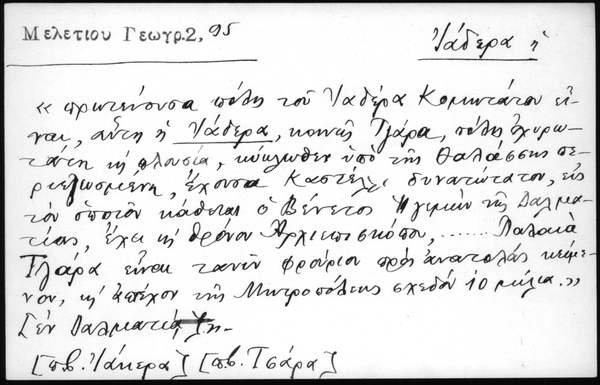 Μελετίου Γεωγρ. 2, 95
Ἰάδερα ἡ
« πρωτεύουσα πόλις τοῦ Ἰαδέρα Κομητάτου εἶ-
ναι, αὕτη ἡ Ἰάδερα, κοινῶς Τζάρα, πόλις ὀχυρω-
τάτη κὴ πλουσία, κύκλωθεν ὑπὸ τῆς θαλάσσης πε-
ριεζωσμένη, ἔχουσα Καστέλι δυνατώτατον, εἰς
τὸν ὁποῖον κάθεται ὁ Βένετος Ἡγεμὼν τῆς Δαλμα-
τίας, ἔχει κὴ θρόνον Ἀρχιεπισκόπου, ...... Παλαιὰ
Τζάρα εἶναι τανῦν φρούριον πρὸς ἀνατολὰς κείμε-
νον, κὴ ἀπέχον τῆς Μητροπόλεως σχεδὸν 10 μίλια.»
[ἐν Δαλματίᾳ
[πβ. Ἰάκερα] [πβ. Τσάρα]